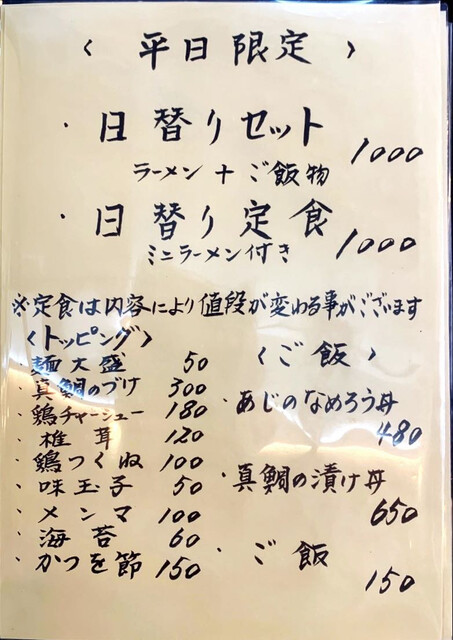 〈 平日限定 〉
・日替りセット 1000
ラーメン+ご飯物
・日替り定食 1000
ミニラーメン付き
※定食は内容により値段が変わる事がございます
〈トッピング〉
・麺大盛 50
・真鯛のづけ 300
・鶏チャーシュー 180
・椎茸 120
・鶏つくね 100
・味玉子 50
・メンマ 100
・海苔 60
・かつを節 150
〈ご飯〉
・あじのなめろう丼
480
・真鯛の漬け丼
650
・ご飯
150